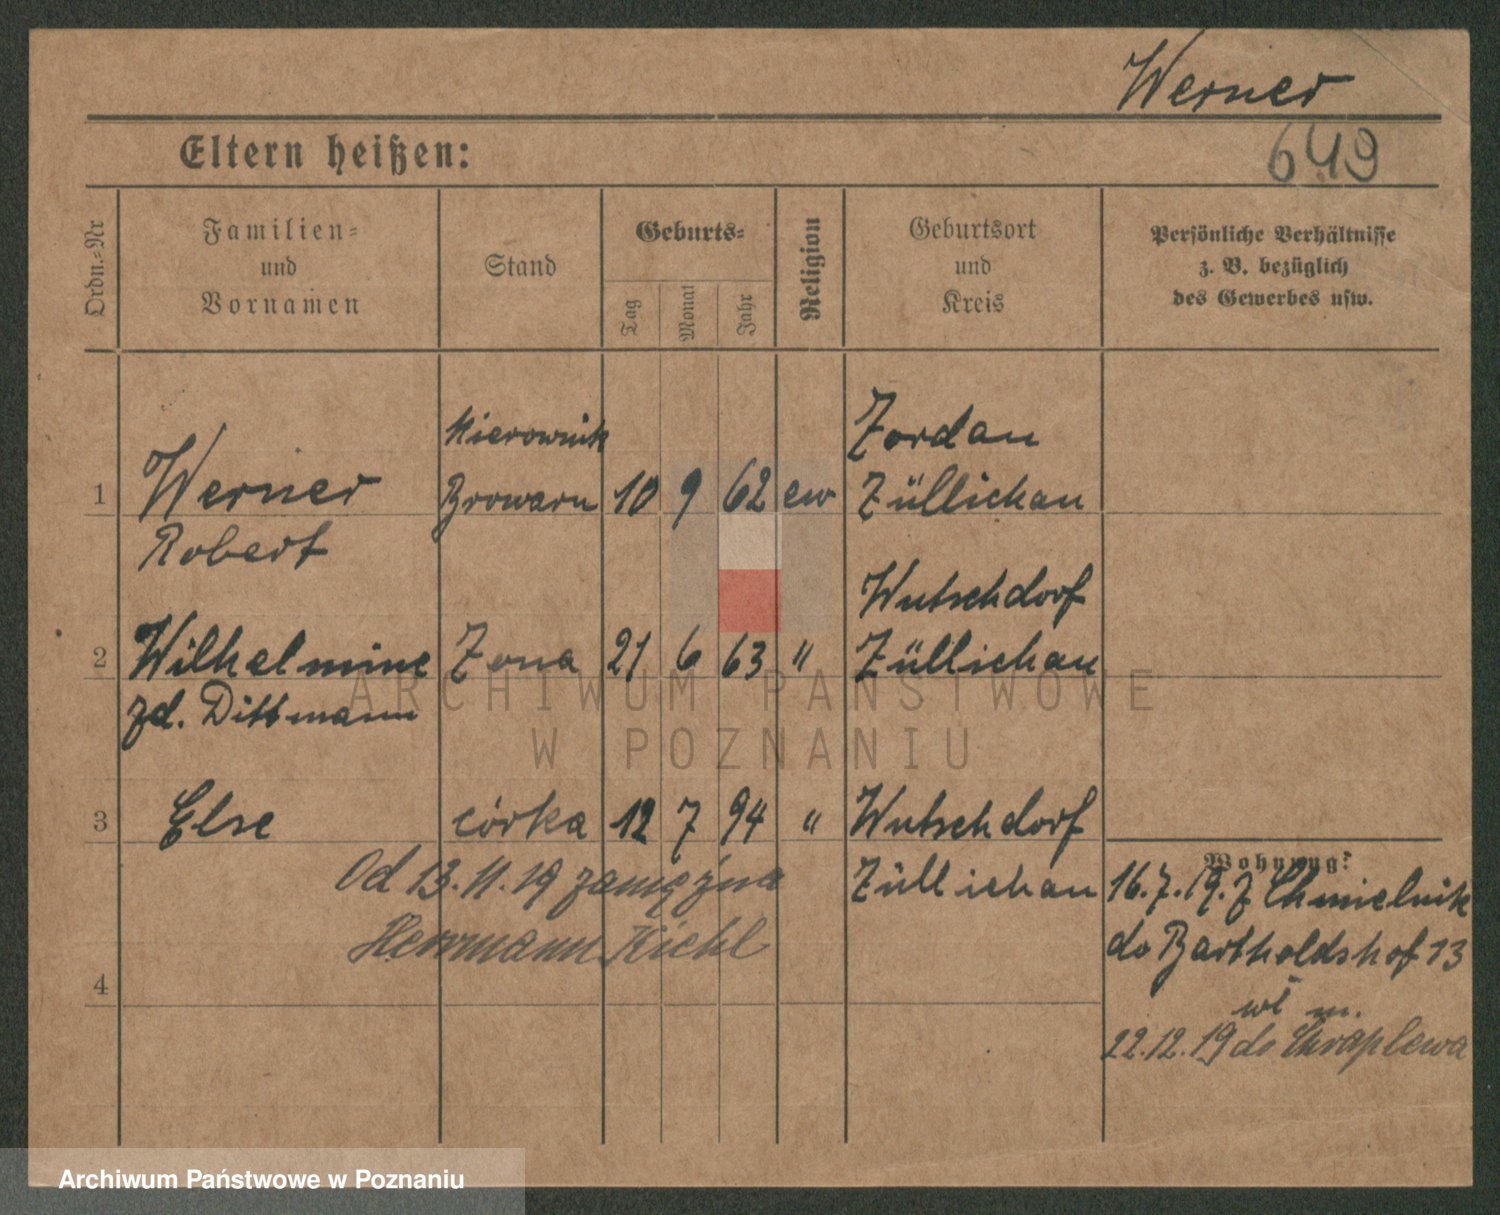 Werner
649
Eltern heißen:
Ordn.-Nr
Familien-
und
Vornamen
Stand
Geburts-
Tag
Monat
Jahr
Religion
Geburtsort
und
Kreis
Persönliche Verhältnisse
z. B. bezüglich
des Gewerbes usw.
Kierownik
Zordan
1 Werner Browaru 10 9 62 ew Züllichau
Robert
Wutschdorf
2 Wilhelmine Żona 21 6 63 " Züllichau
zd. Dittmann
3 Else córka 12 7 94 " Wutschdorf
Wohnung?
Od 13.11.19 zamężna Züllichau 16.7.19. z Chmielnik
Herrmann Kiehl do Bartholdshof 13
4
wł m.
22.12.19 do Chraplewa
ARCHIWUM PAŃSTWOWE
W POZNANIU
Archiwum Państwowe w Poznaniu